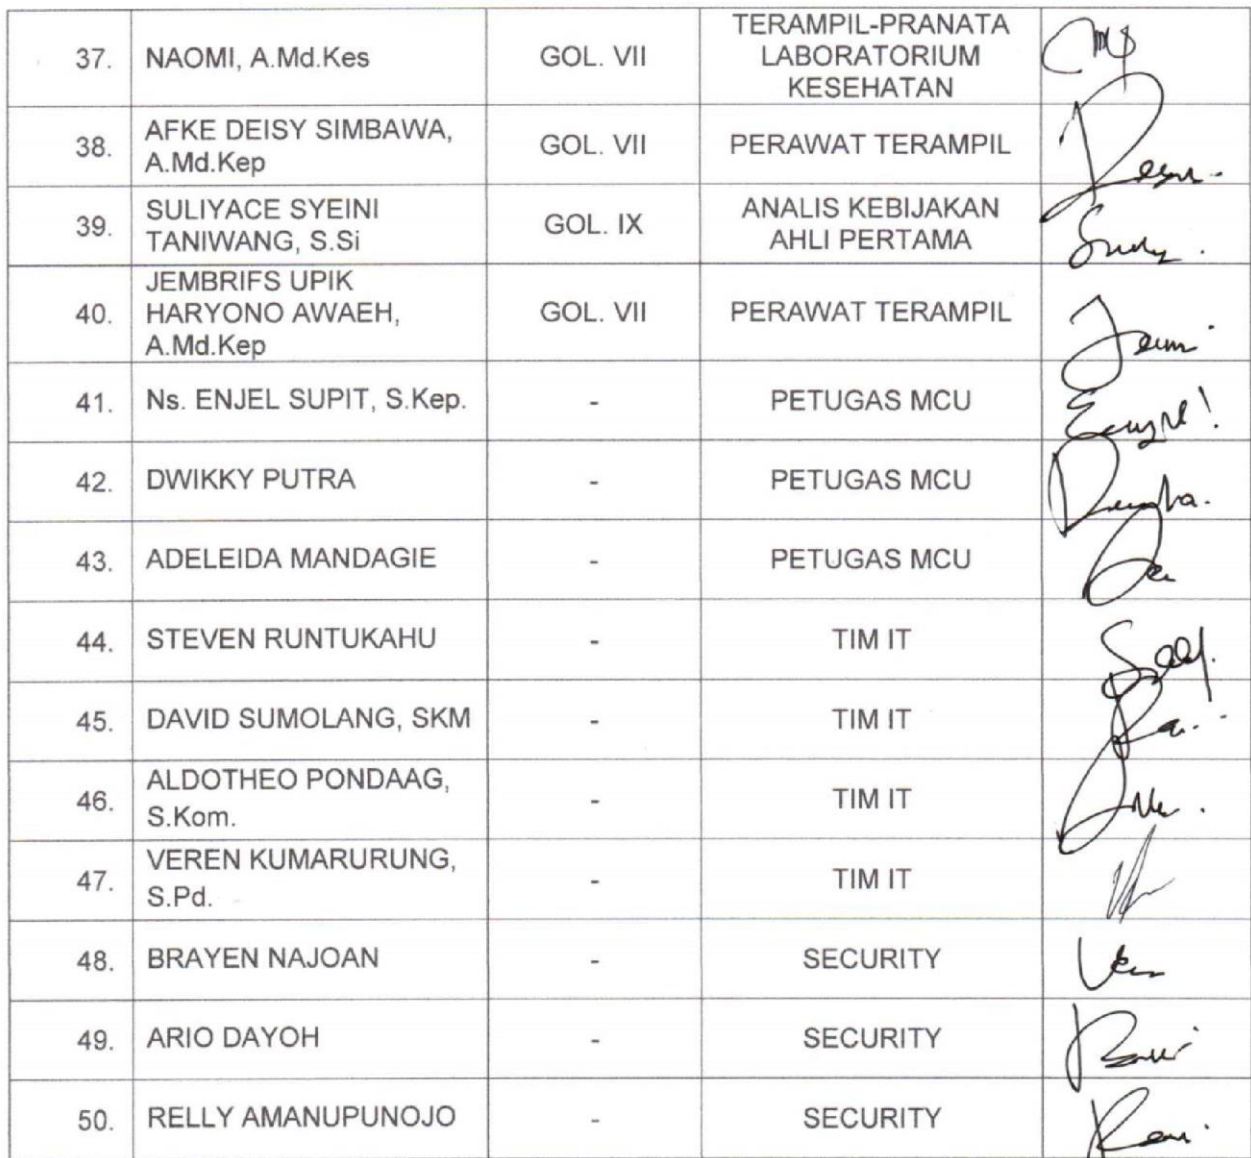 37. NAOMI, A.Md.Kes GOL. VII TERAMPIL-PRANATA
LABORATORIUM
KESEHATAN
38. AFKE DEISY SIMBAWA, GOL. VII PERAWAT TERAMPIL
A.Md.Kep
39. SULIYACE SYEINI GOL. IX ANALIS KEBIJAKAN
TANIWANG, S.Si AHLI PERTAMA
40. JEMBRIFS UPIK GOL. VII PERAWAT TERAMPIL
HARYONO AWAEH,
A.Md.Kep
41. Ns. ENJEL SUPIT, S.Kep. - PETUGAS MCU
42. DWIKKY PUTRA - PETUGAS MCU
43. ADELEIDA MANDAGIE - PETUGAS MCU
44. STEVEN RUNTUKAHU - TIM IT
45. DAVID SUMOLANG, SKM - TIM IT
46. ALDOTHEO PONDAAG, - TIM IT
S.Kom.
47. VEREN KUMARURUNG, - TIM IT
S.Pd.
48. BRAYEN NAJOAN - SECURITY
49. ARIO DAYOH - SECURITY
50. RELLY AMANUPUNOJO - SECURITY